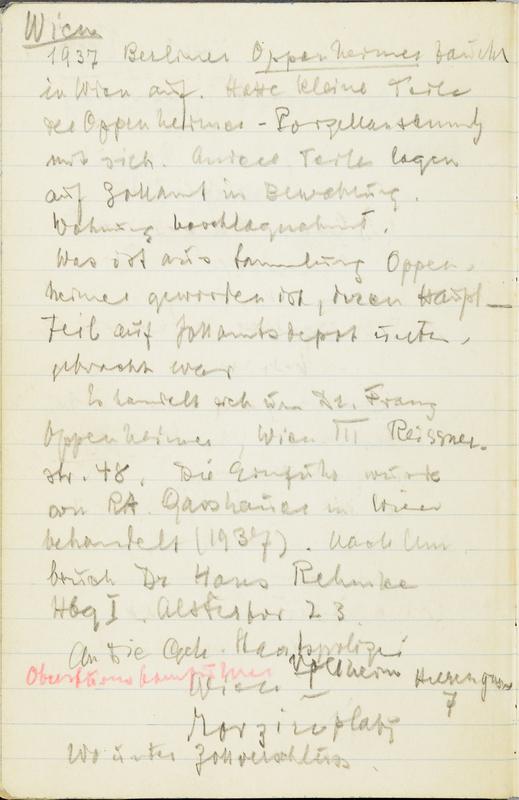 Wien
1937 Berliner Oppenheimer taucht
in Wien auf. Hatte kleine Teile
der Oppenheimer-Porzellansammlg
mit sich. Andere Teile lagen
auf Zollamt in Bewahrung.
Wohnung beschlagnahmt.
Was ist aus Sammlung Oppen-
heimer geworden ist, deren Haupt-
teil auf Zollamtsdepot unter-
gebracht war
Es handelt sich um Dr. Franz
Oppenheimer, Wien III Reissner-
str. 48. Die Einfuhr wurde
von RA. in Wien
behandelt (1937). Nach Um
bruch Dr Hans Rehmke
Hbg I. Alstertor 23.
An die Geh. Staatspolizei
Obersturmbannführer Herrengasse
7
Wien I
Morzinplatz
Wo unter Zollverschluss